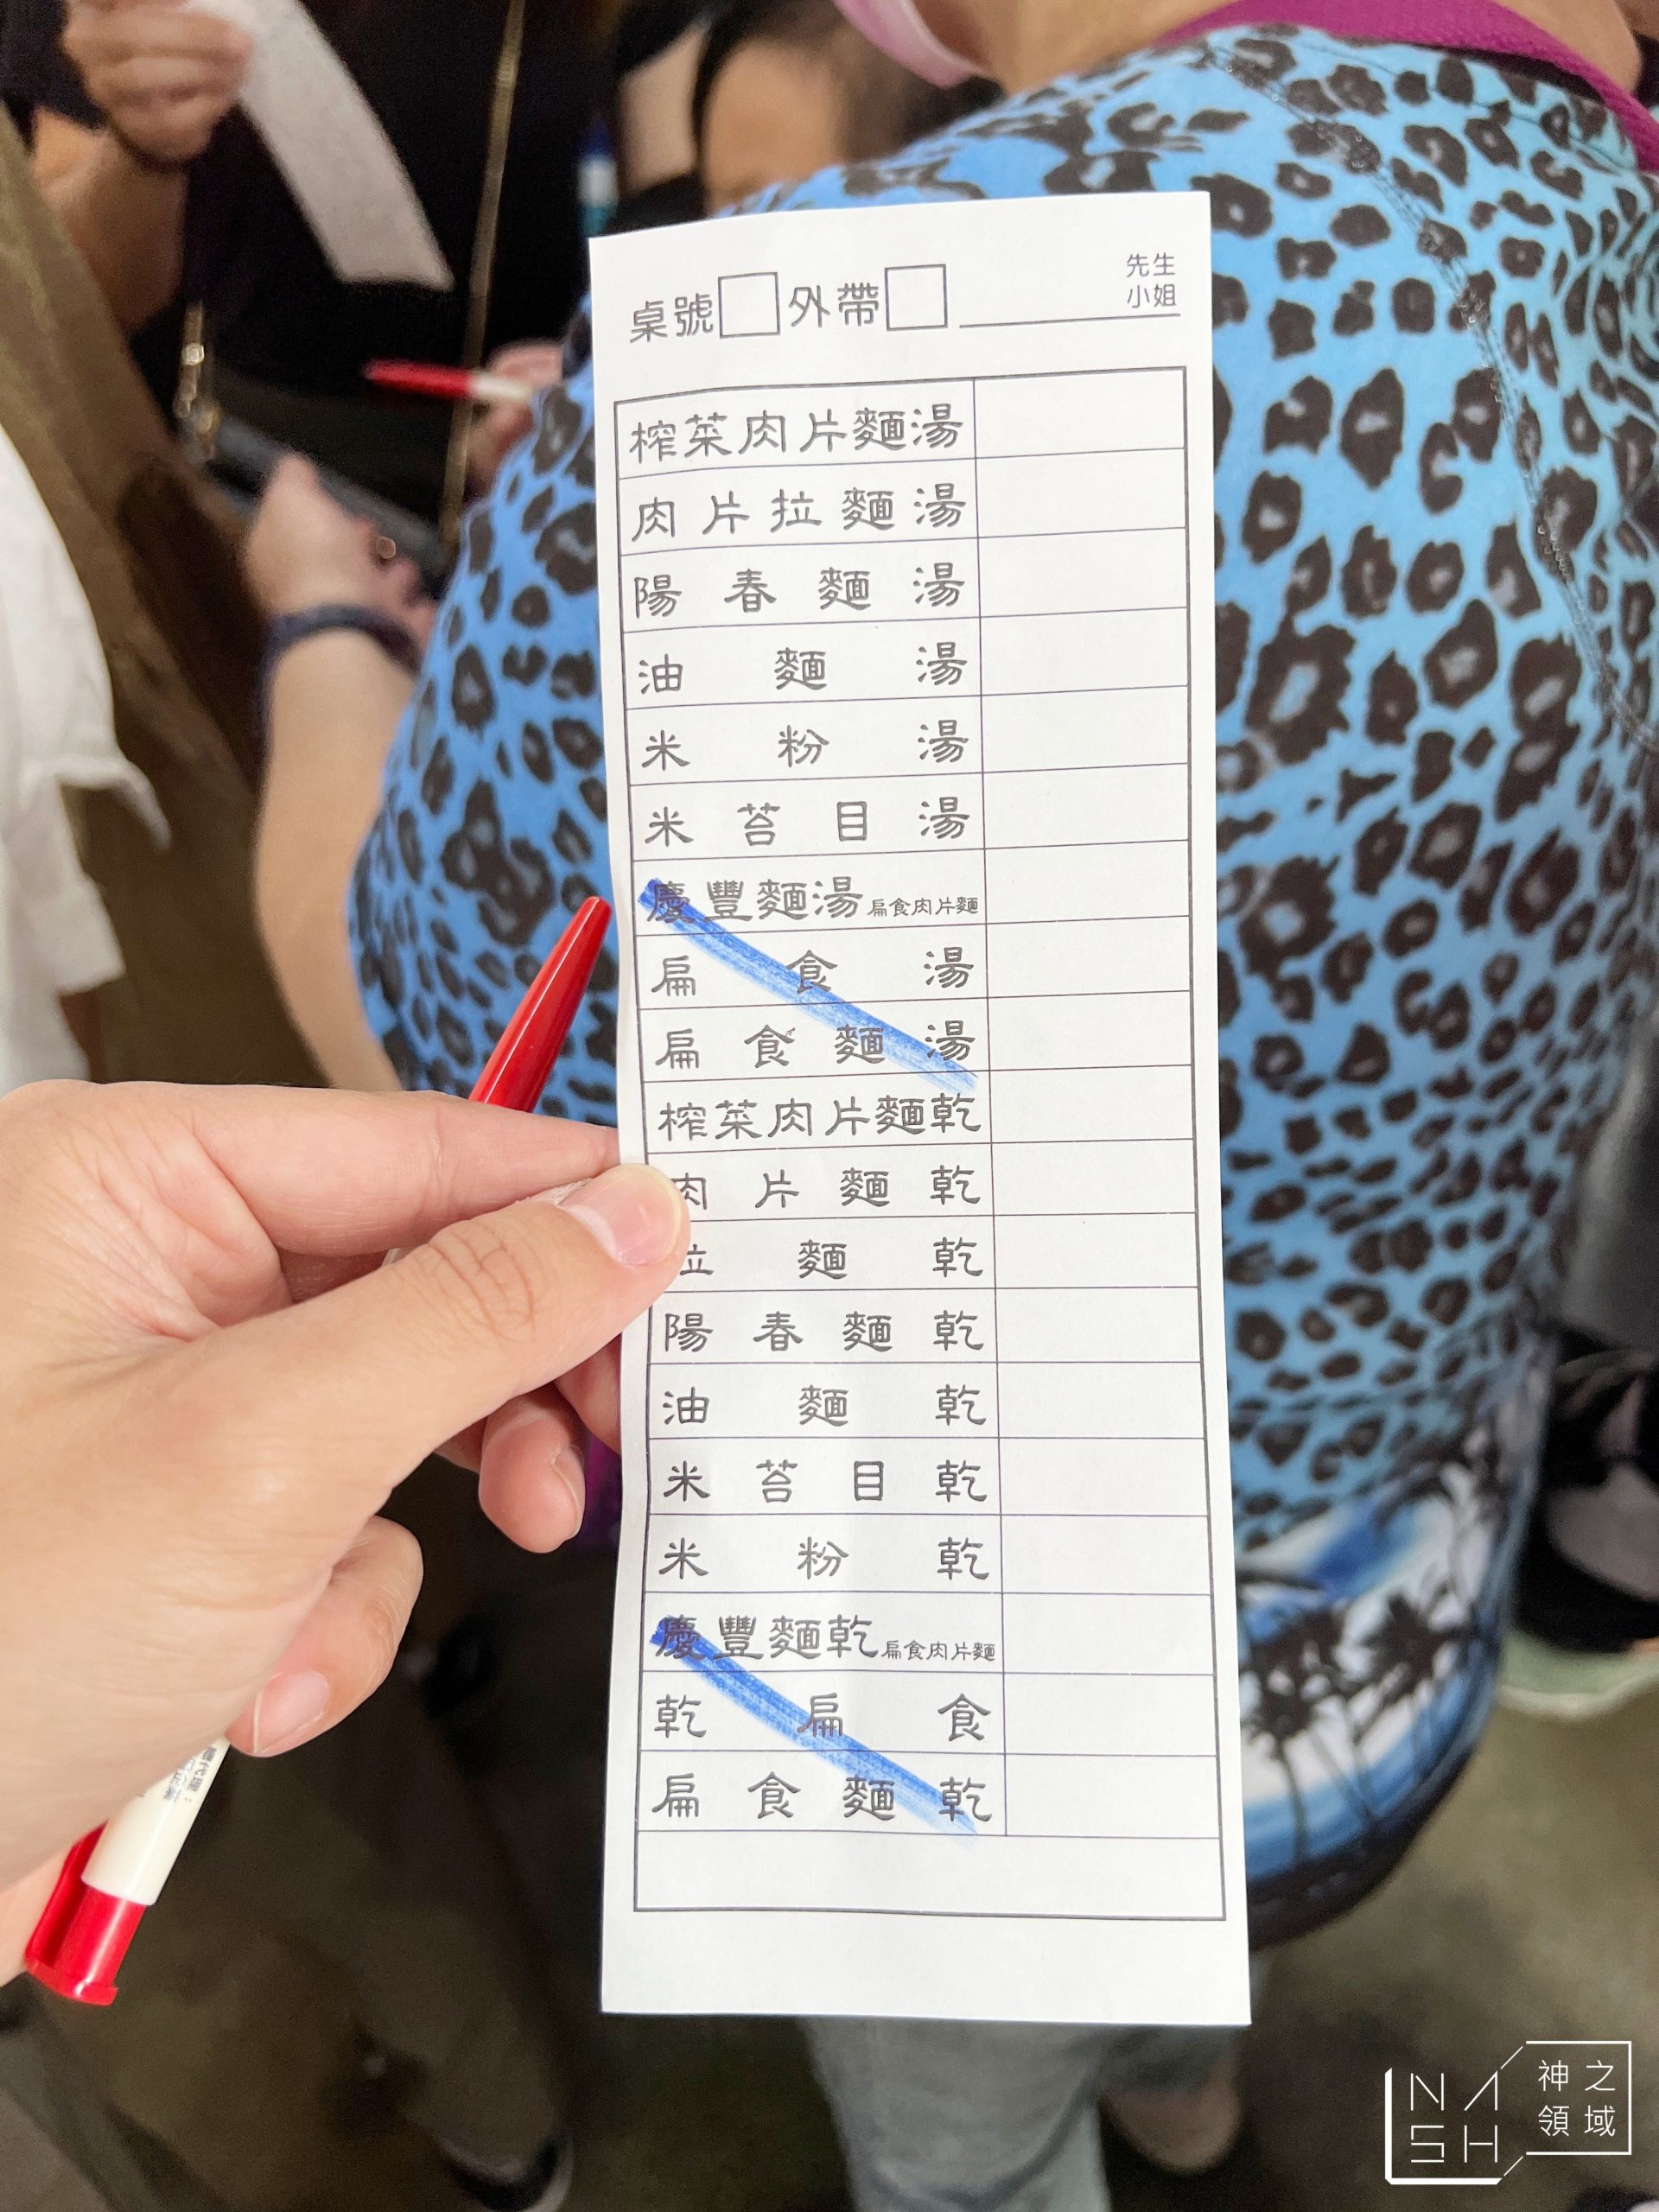 桌號 外帶 先生
小姐
榨菜肉片麵湯
肉片拉麵湯
陽春麵湯
油麵湯
米粉湯
米苔目湯
慶豐麵湯扁食肉片麵
扁食湯
扁食麵湯
榨菜肉片麵乾
肉片麵乾
拉麵乾
陽春麵乾
油麵乾
米苔目乾
米粉乾
慶豐麵乾扁食肉片麵
乾扁食
扁食麵乾
NASH
神之
領域